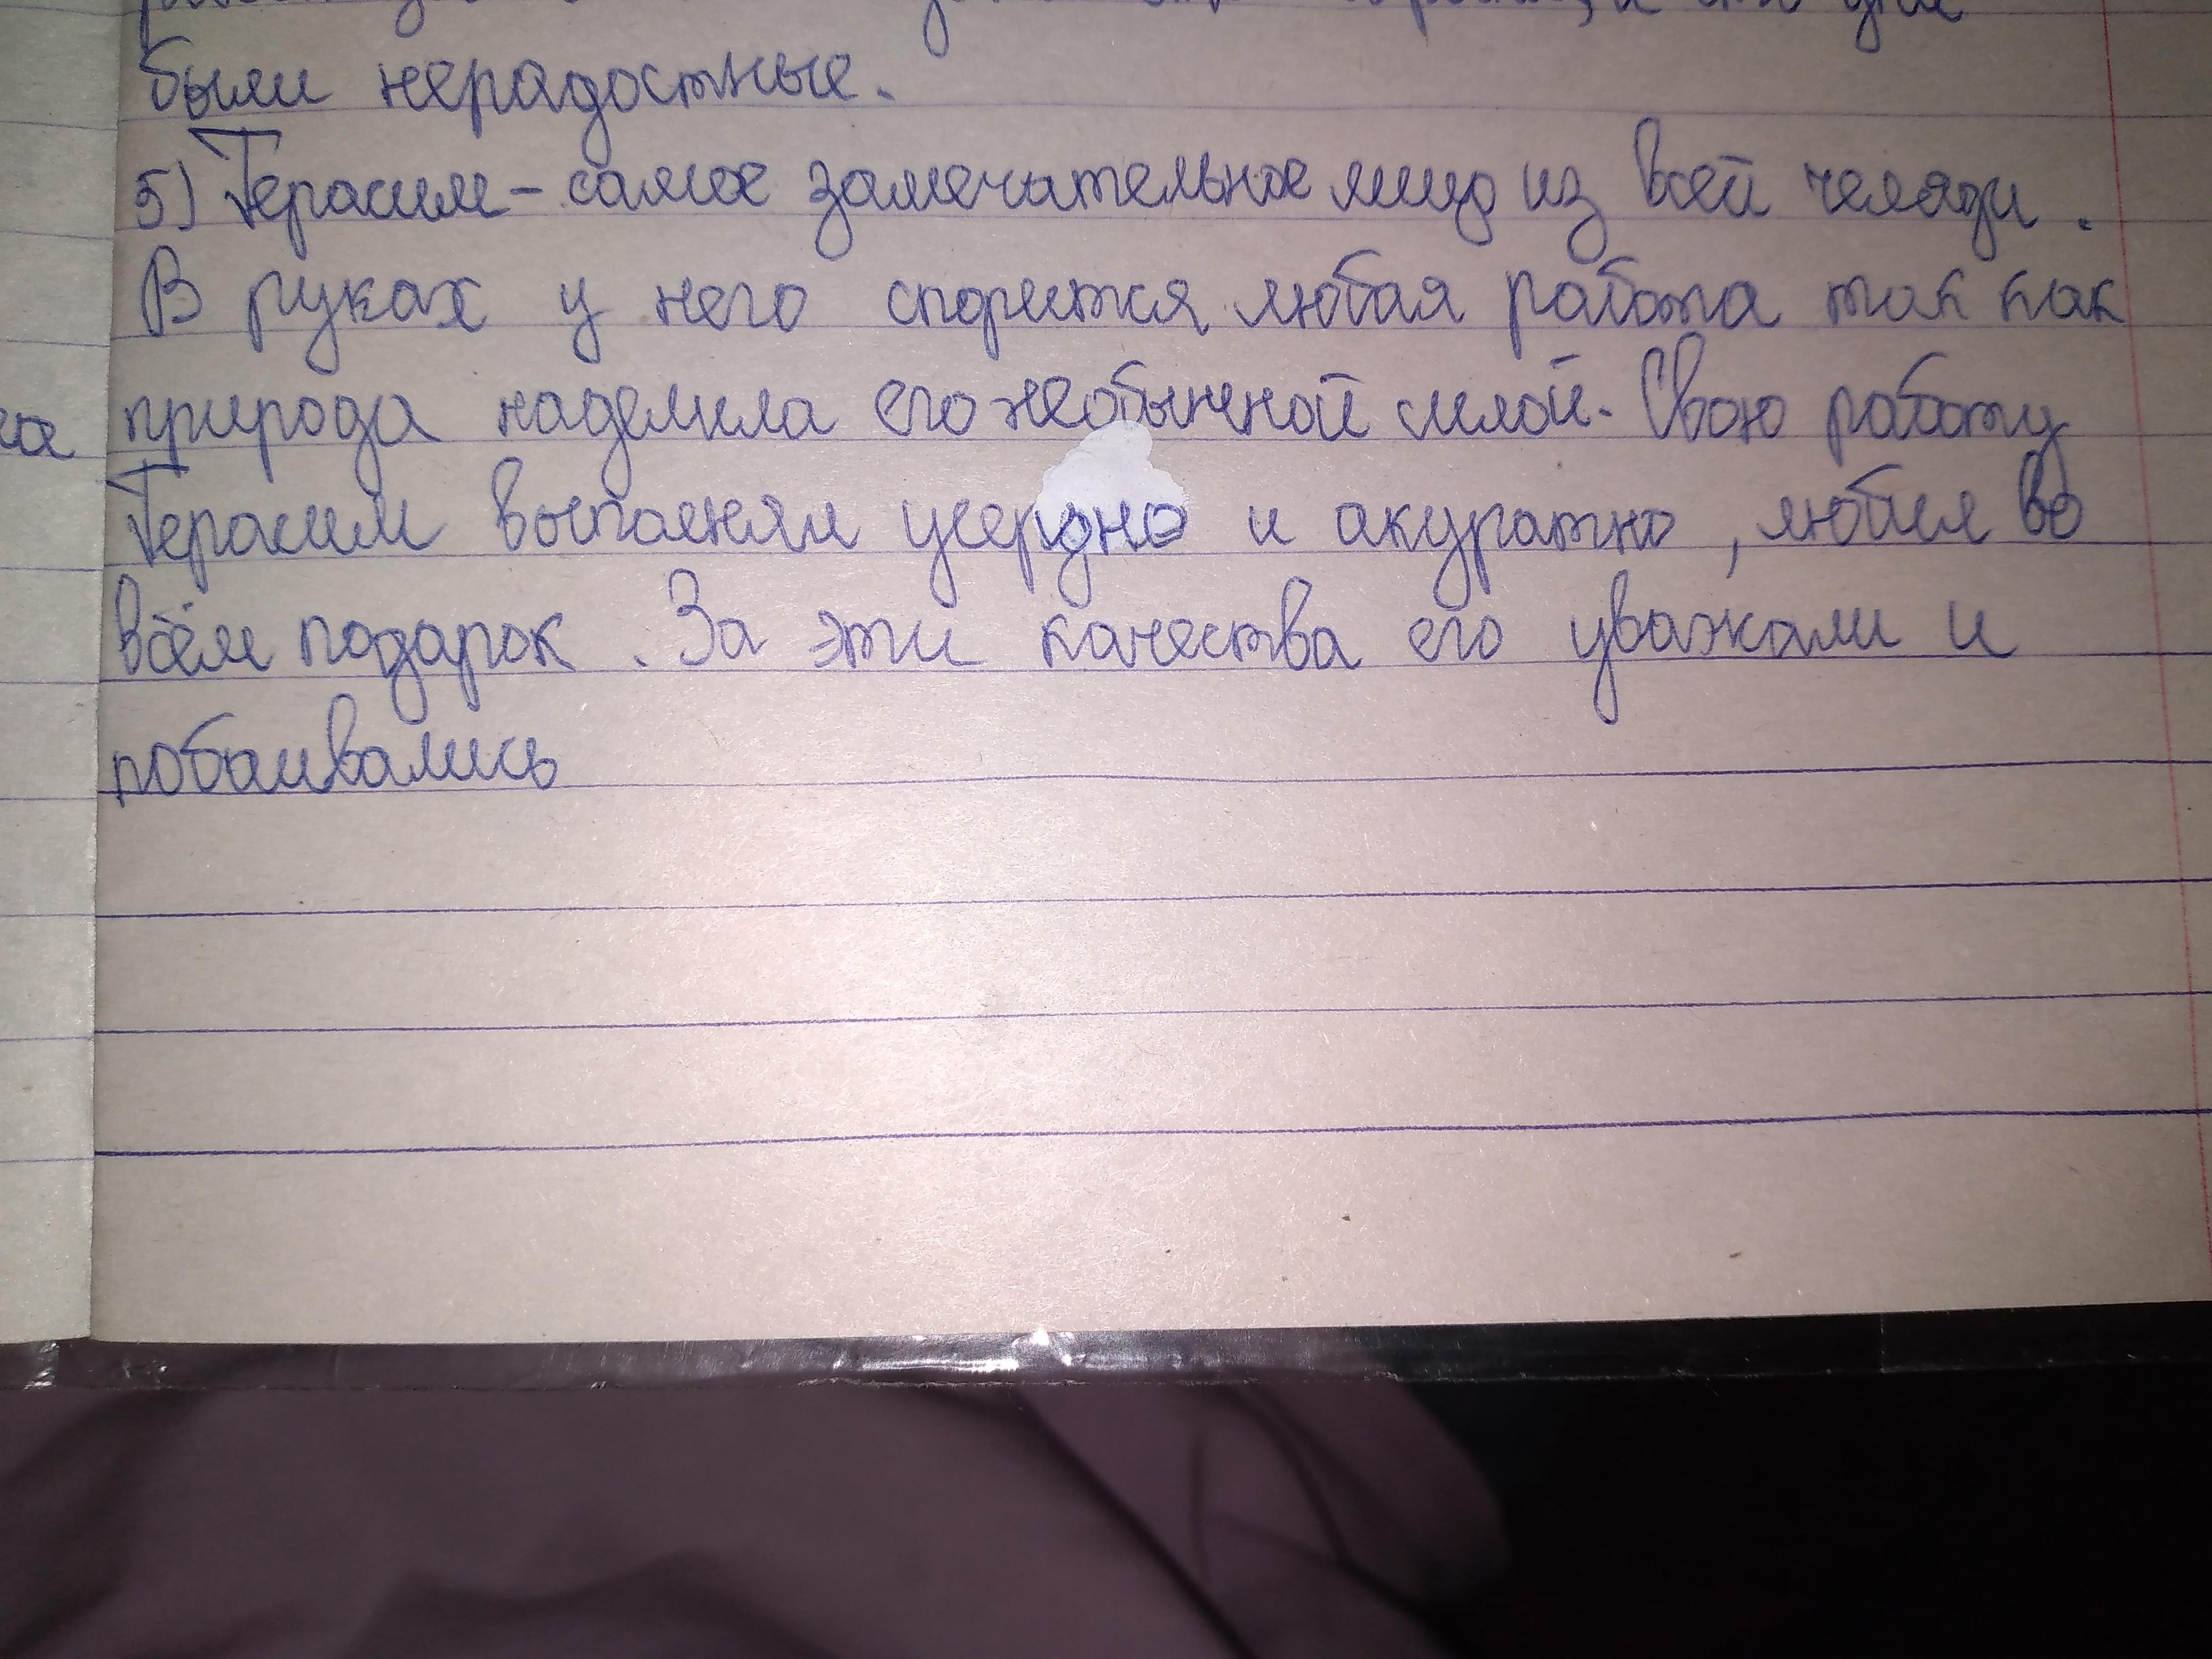 были нерадостные.
5) Герасим – самое замечательное лицо из всей челяди.
В руках у него спорится любая работа так как
природа наделила его необычной силой. Свою работу
Герасим выполнял усердно и акуратно, любил во
всём подарок. За эти качества его уважали и
побаивались